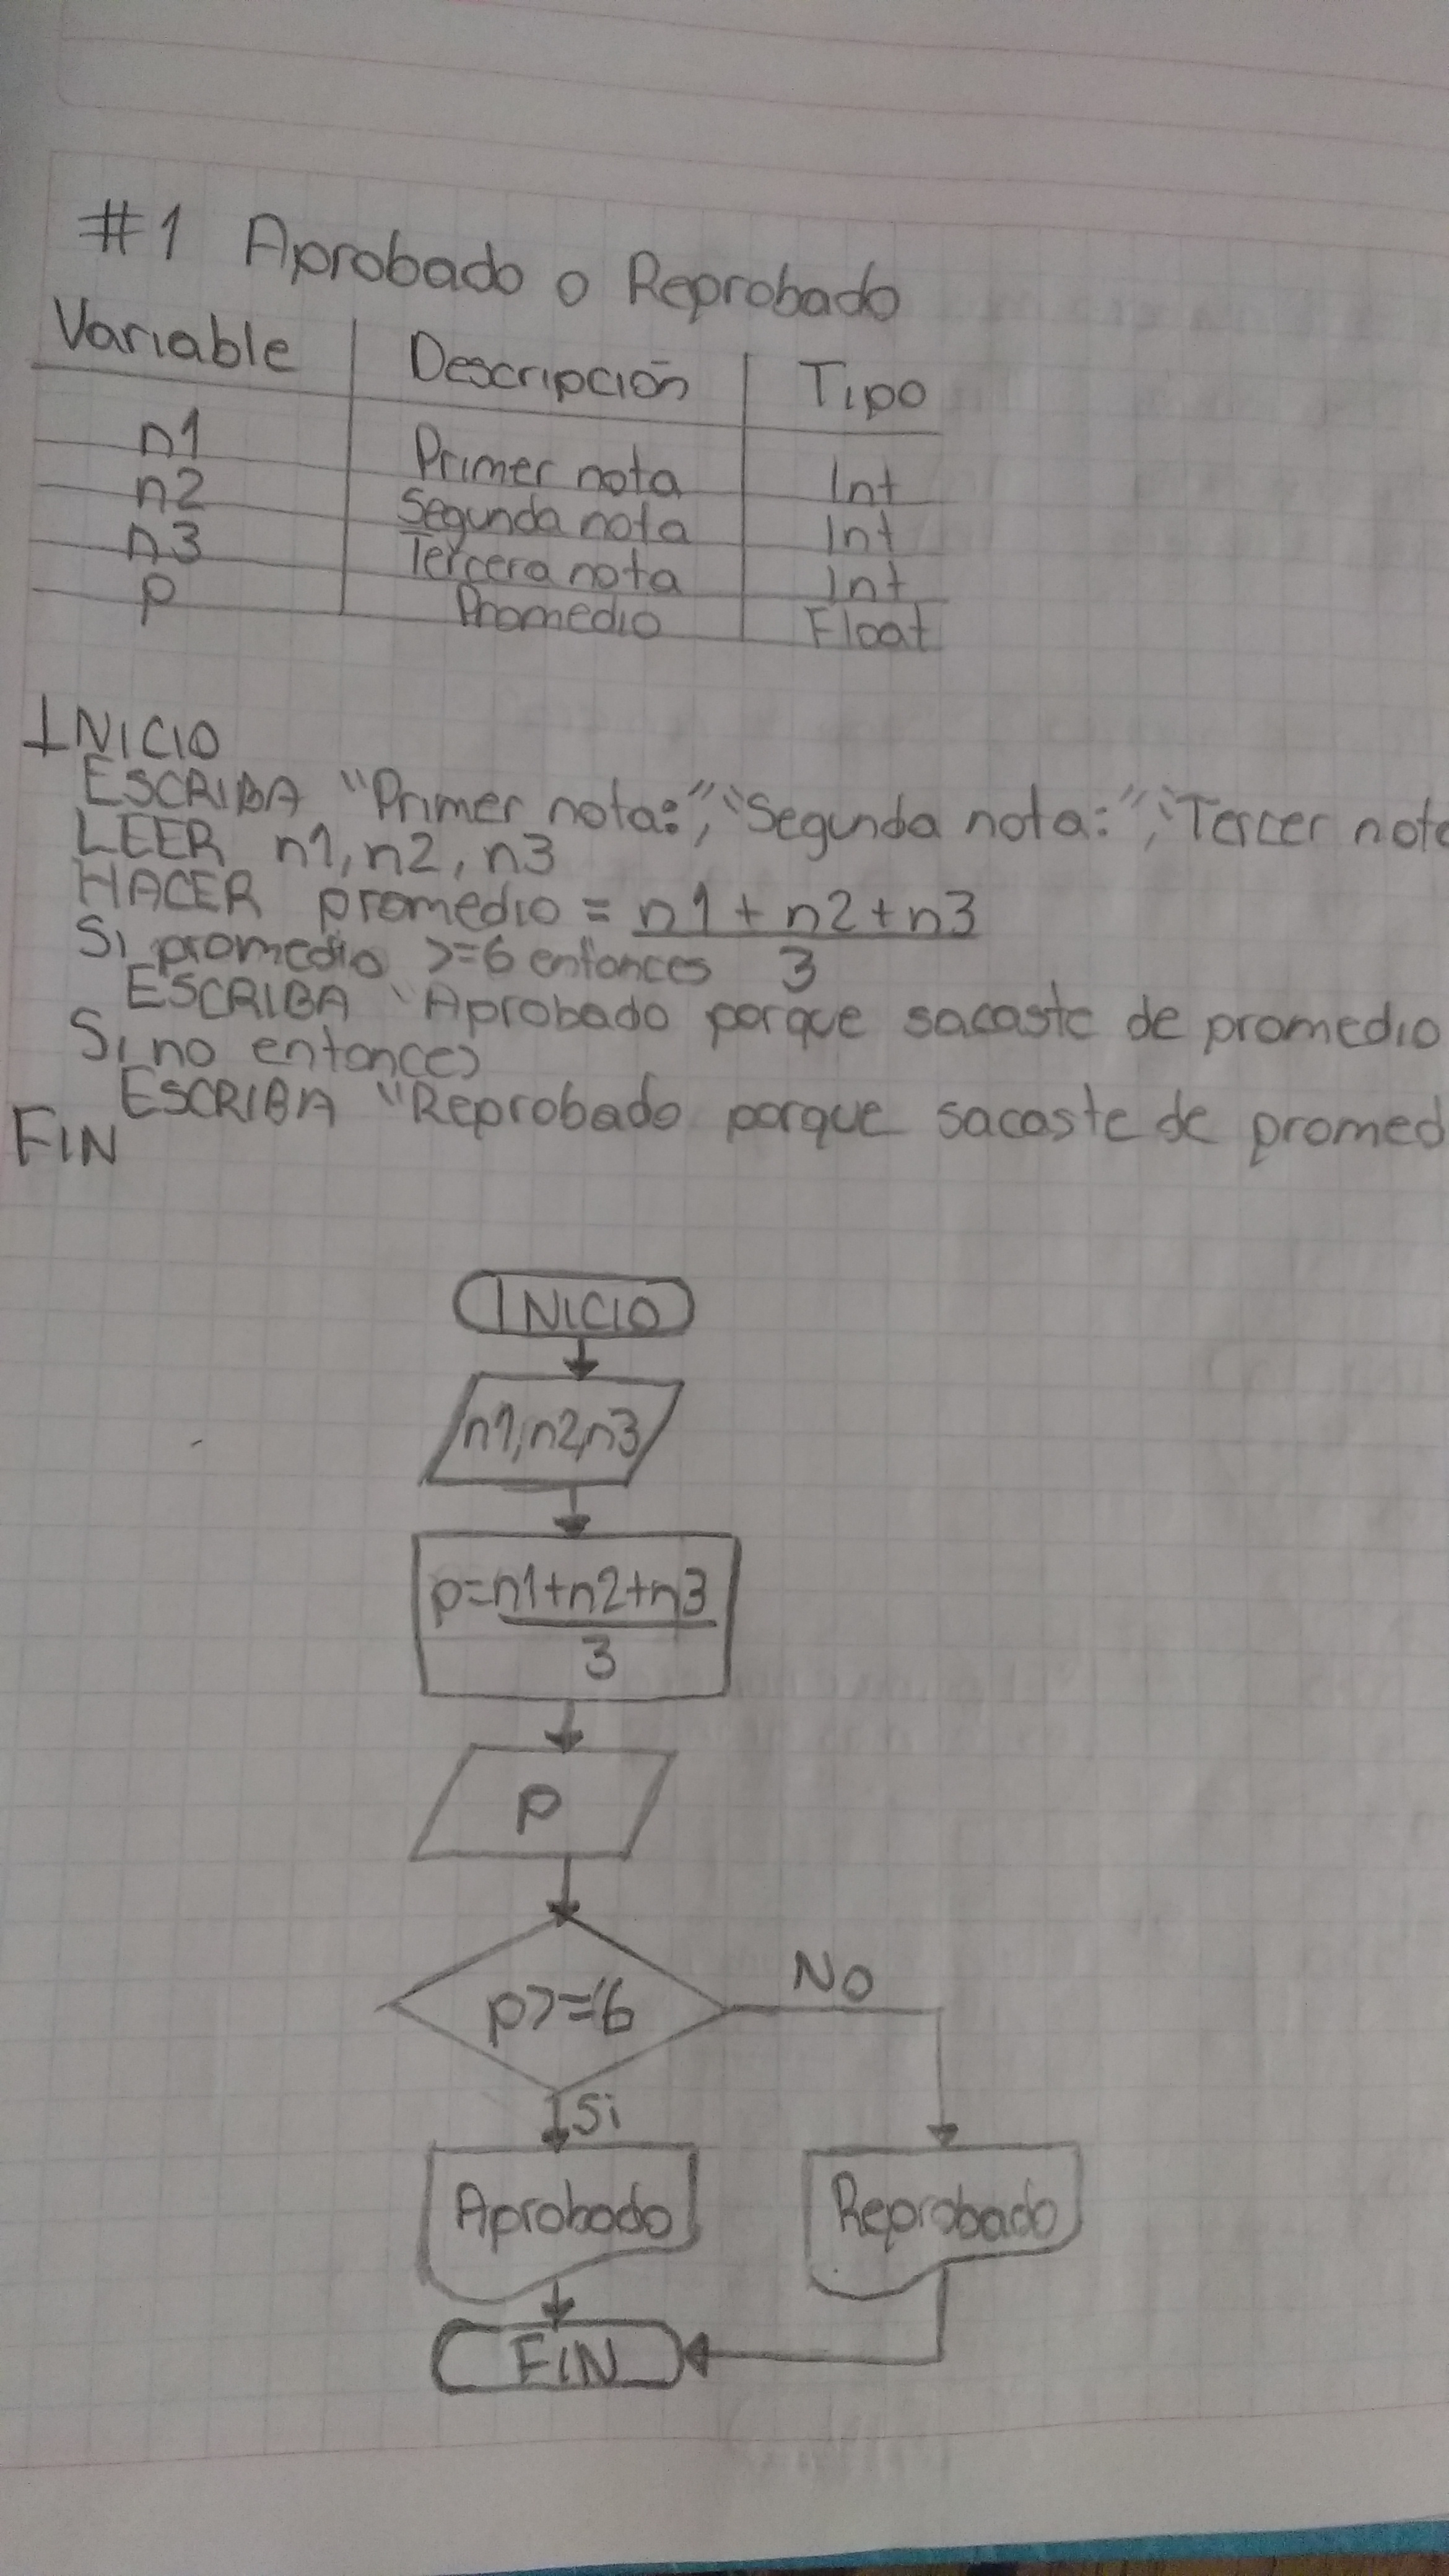 #1 Aprobado o Reprobado
Variable Descripción Tipo
n1 Primer nota Int
n2 Segunda nota Int
n3 Tercera nota Int
p Promedio Float
INICIO
ESCRIBA "Primer nota:", "Segunda nota:", "Tercer nota
LEER n1, n2, n3
HACER promedio = n1 + n2 + n3
3
Si promedio >=6 entonces
ESCRIBA "Aprobado porque sacaste de promedio
Si no entonces
ESCRIBA "Reprobado porque sacaste de promed
FIN
INICIO
n1, n2, n3
p=n1+n2+n3
3
P
p>=6
NO
Si
Aprobado
Reprobado
FIN